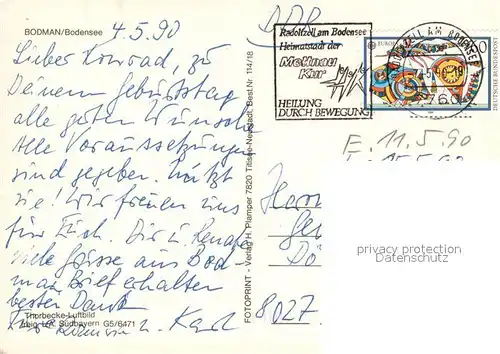 BODMAN/Bodensee
4.5.90
Lieber Konrad, zu
Deinem Geburtstag
alle guten Wünsche
Alle Voraussetzungen
sind gegeben. Nützt
sie! Wir freuen uns
für Euch. Dir u. Renate
viele Grüsse aus Bod-
man Brief erhalten
besten Dank
Thorbecke-Luftbild
freig. Südbayern G5/6471
u. Karl
FOTOPRINT - Verlag H. Plamper 7820 Titisee-Neustadt, Best.Nr. 114/18
DDR
Radolfzell am Bodensee
Heimatstadt der
Mettnau
Kur
HEILUNG
DURCH BEWEGUNG
RADOLFZELL AM BODENSEE
-4.-5.90-19
760
EUROPA
DEUTSCHE BUNDESPOST
E. 11.5.90
15.5.90
Herrn
8027
privacy protection
Datenschutz